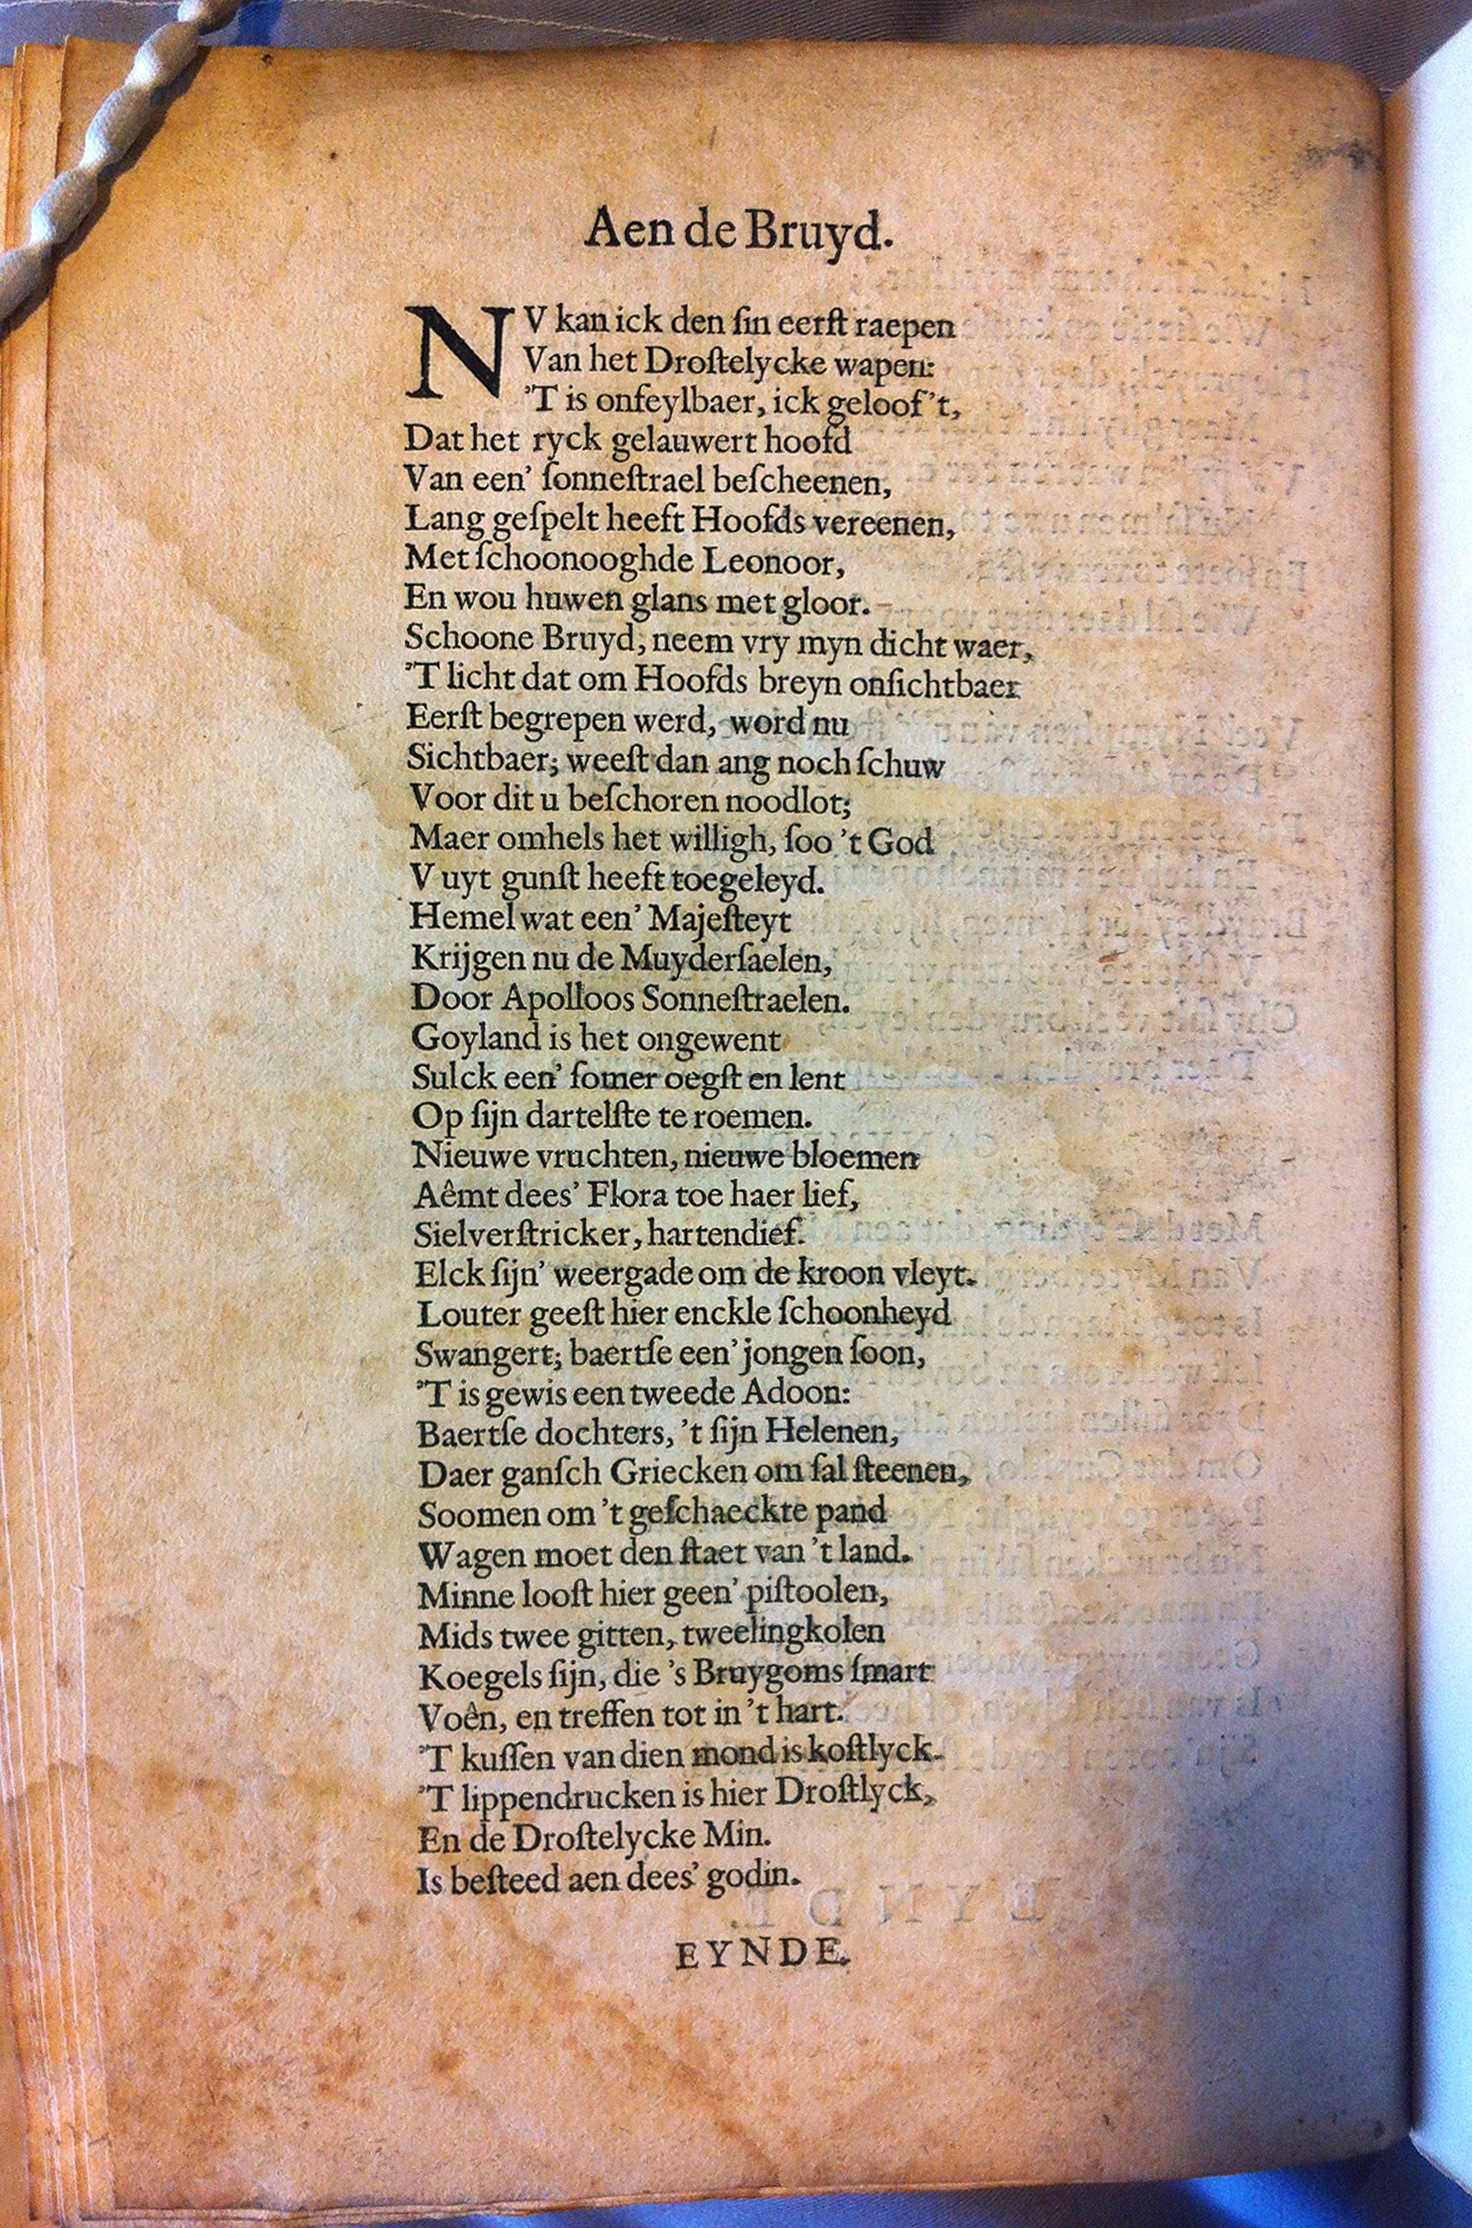 Aen de Bruyd.
NV kan ick den ſin eerſt raepen
Van het Droſtelycke wapen:
'T is onfeylbaer, ick geloof 't,
Dat het ryck gelauwert hoofd
Van een' ſonneſtrael beſcheenen,
Lang geſpelt heeft Hoofds vereenen,
Met ſchoonooghde Leonoor,
En wou huwen glans met gloor.
Schoone Bruyd, neem vry myn dicht waer,
'T licht dat om Hoofds breyn onſichtbaer
Eerſt begrepen werd, word nu
Sichtbaer; weeſt dan ang noch ſchuw
Voor dit u beſchoren noodlot;
Maer omhels het willigh, ſoo 't God
V uyt gunſt heeft toegeleyd.
Hemel wat een' Majeſteyt
Krijgen nu de Muyderſaelen,
Door Apolloos Sonneſtraelen.
Goyland is het ongewent
Sulck een' ſomer oegſt en lent
Op ſijn dartelſte te roemen.
Nieuwe vruchten, nieuwe bloemen
Aêmt dees' Flora toe haer lief,
Sielverſtricker, hartendief.
Elck ſijn' weergade om de kroon vleyt.
Louter geeſt hier enckle ſchoonheyd
Swangert; baertſe een' jongen ſoon,
'T is gewis een tweede Adoon:
Baertſe dochters, 't ſijn Helenen,
Daer ganſch Griecken om ſal ſteenen,
Soomen om 't geſchaeckte pand
Wagen moet den ſtaet van 't land.
Minne looſt hier geen' piſtoolen,
Mids twee gitten, tweelingkolen
Koegels ſijn, die 's Bruygoms ſmart
Voên, en treffen tot in 't hart.
'T kuſſen van dien mond is koſtlyck.
'T lippendrucken is hier Droſtlyck,
En de Droſtelycke Min.
Is beſteed aen dees' godin.
EYNDE.